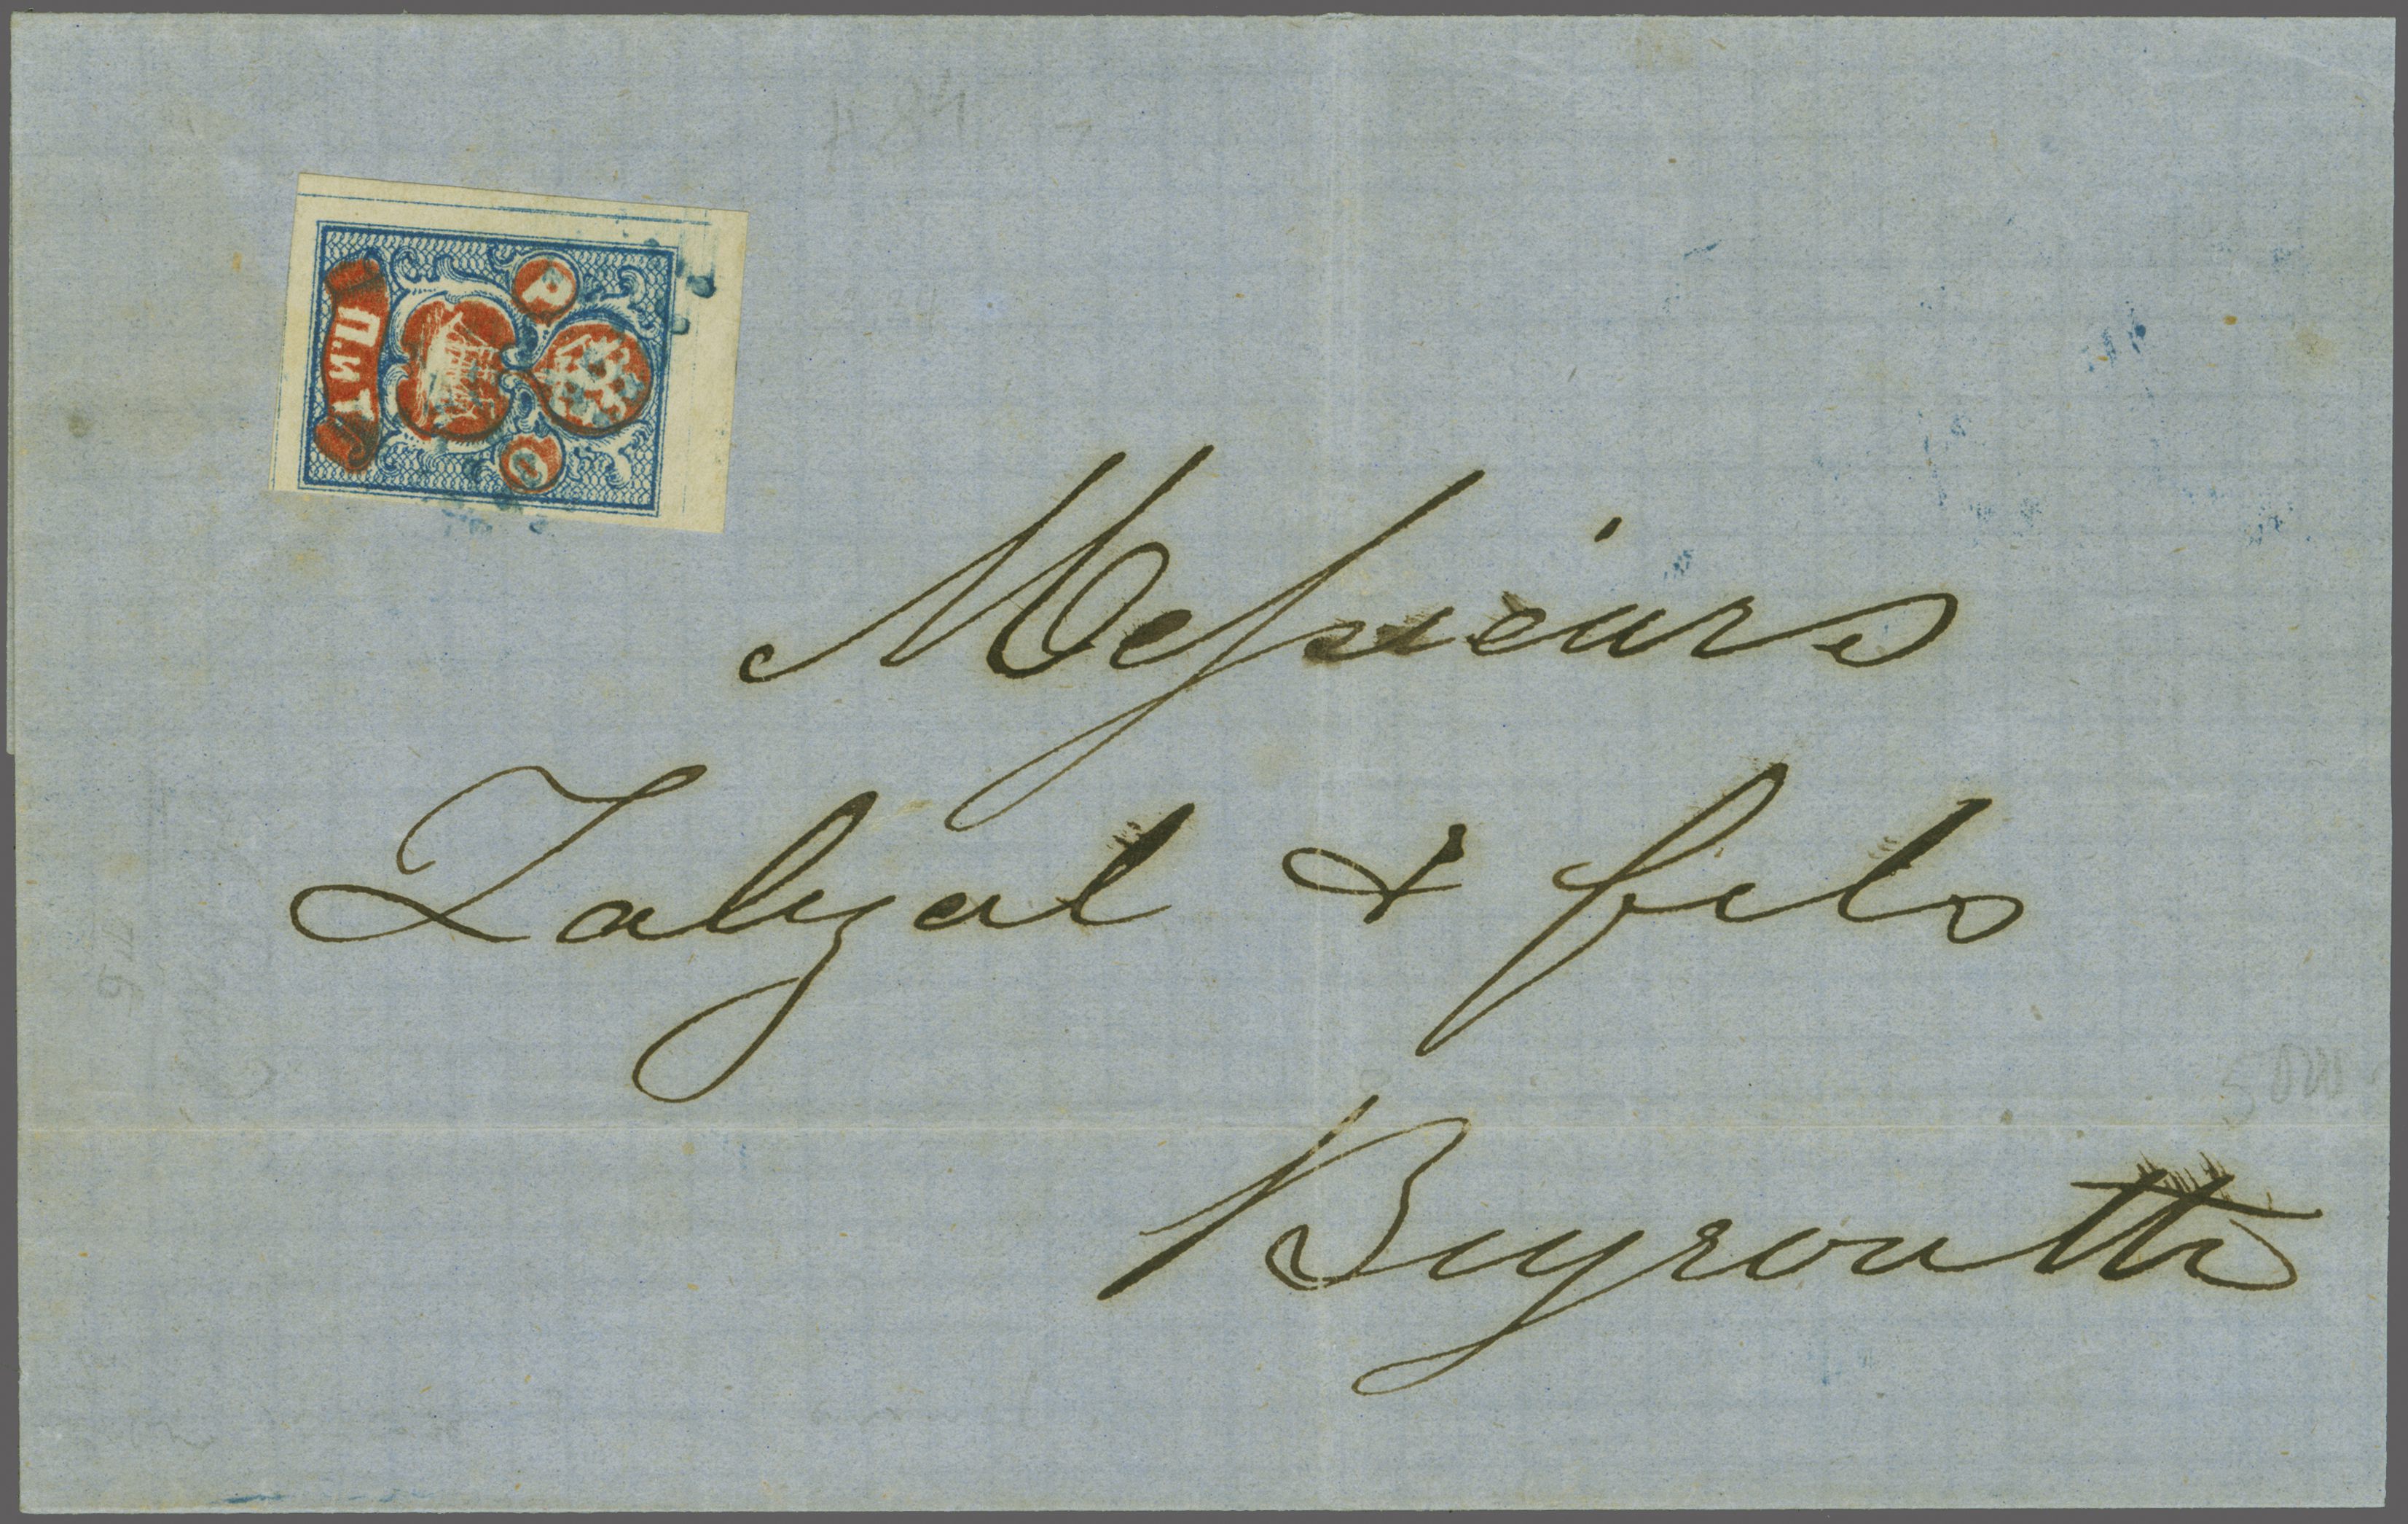 Р О
П. и Т.
Messieurs
Zalzal & fils
Beyrouth